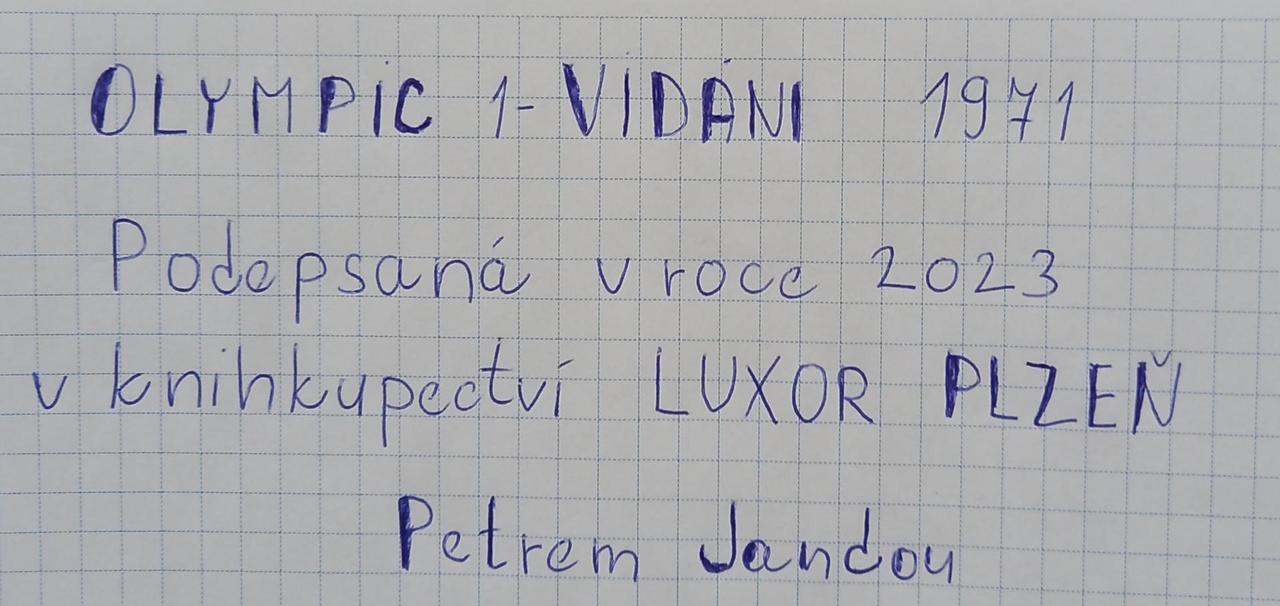 OLYMPIC 1-VIDÁNI 1971
Podepsaná v roce 2023
v knihkupectví LUXOR PLZEŇ
Petrem Jandou